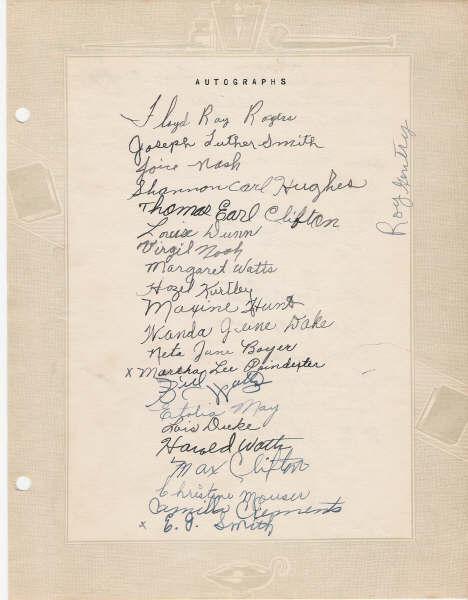 AUTOGRAPHS
Floyd Ray Rogers
Joseph Luther Smith
Nash
Shannon Carl Hughes
Thomas Earl Clifton
Louise Dunn
Virgil Nash
Margaret Watts
Hazel Kurtley
Maxine Hunt
Wanda June Dake
Neta Jane Boyer
x Martha Lee Poindexter
Bill Watts
May
Lois Duke
Harold Watts
Max Clifton
Christine Mouser
Camilla Clements
x E. J. Smith
Roy Gentry